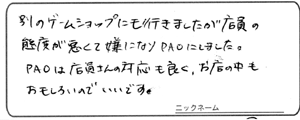 別のゲームショップにも行きましたが店員の
態度が悪くて嫌になりPAOにしました。
PAOは店員さんの対応も良く、お店の中も
おもしろいのでいいです。
ニックネーム